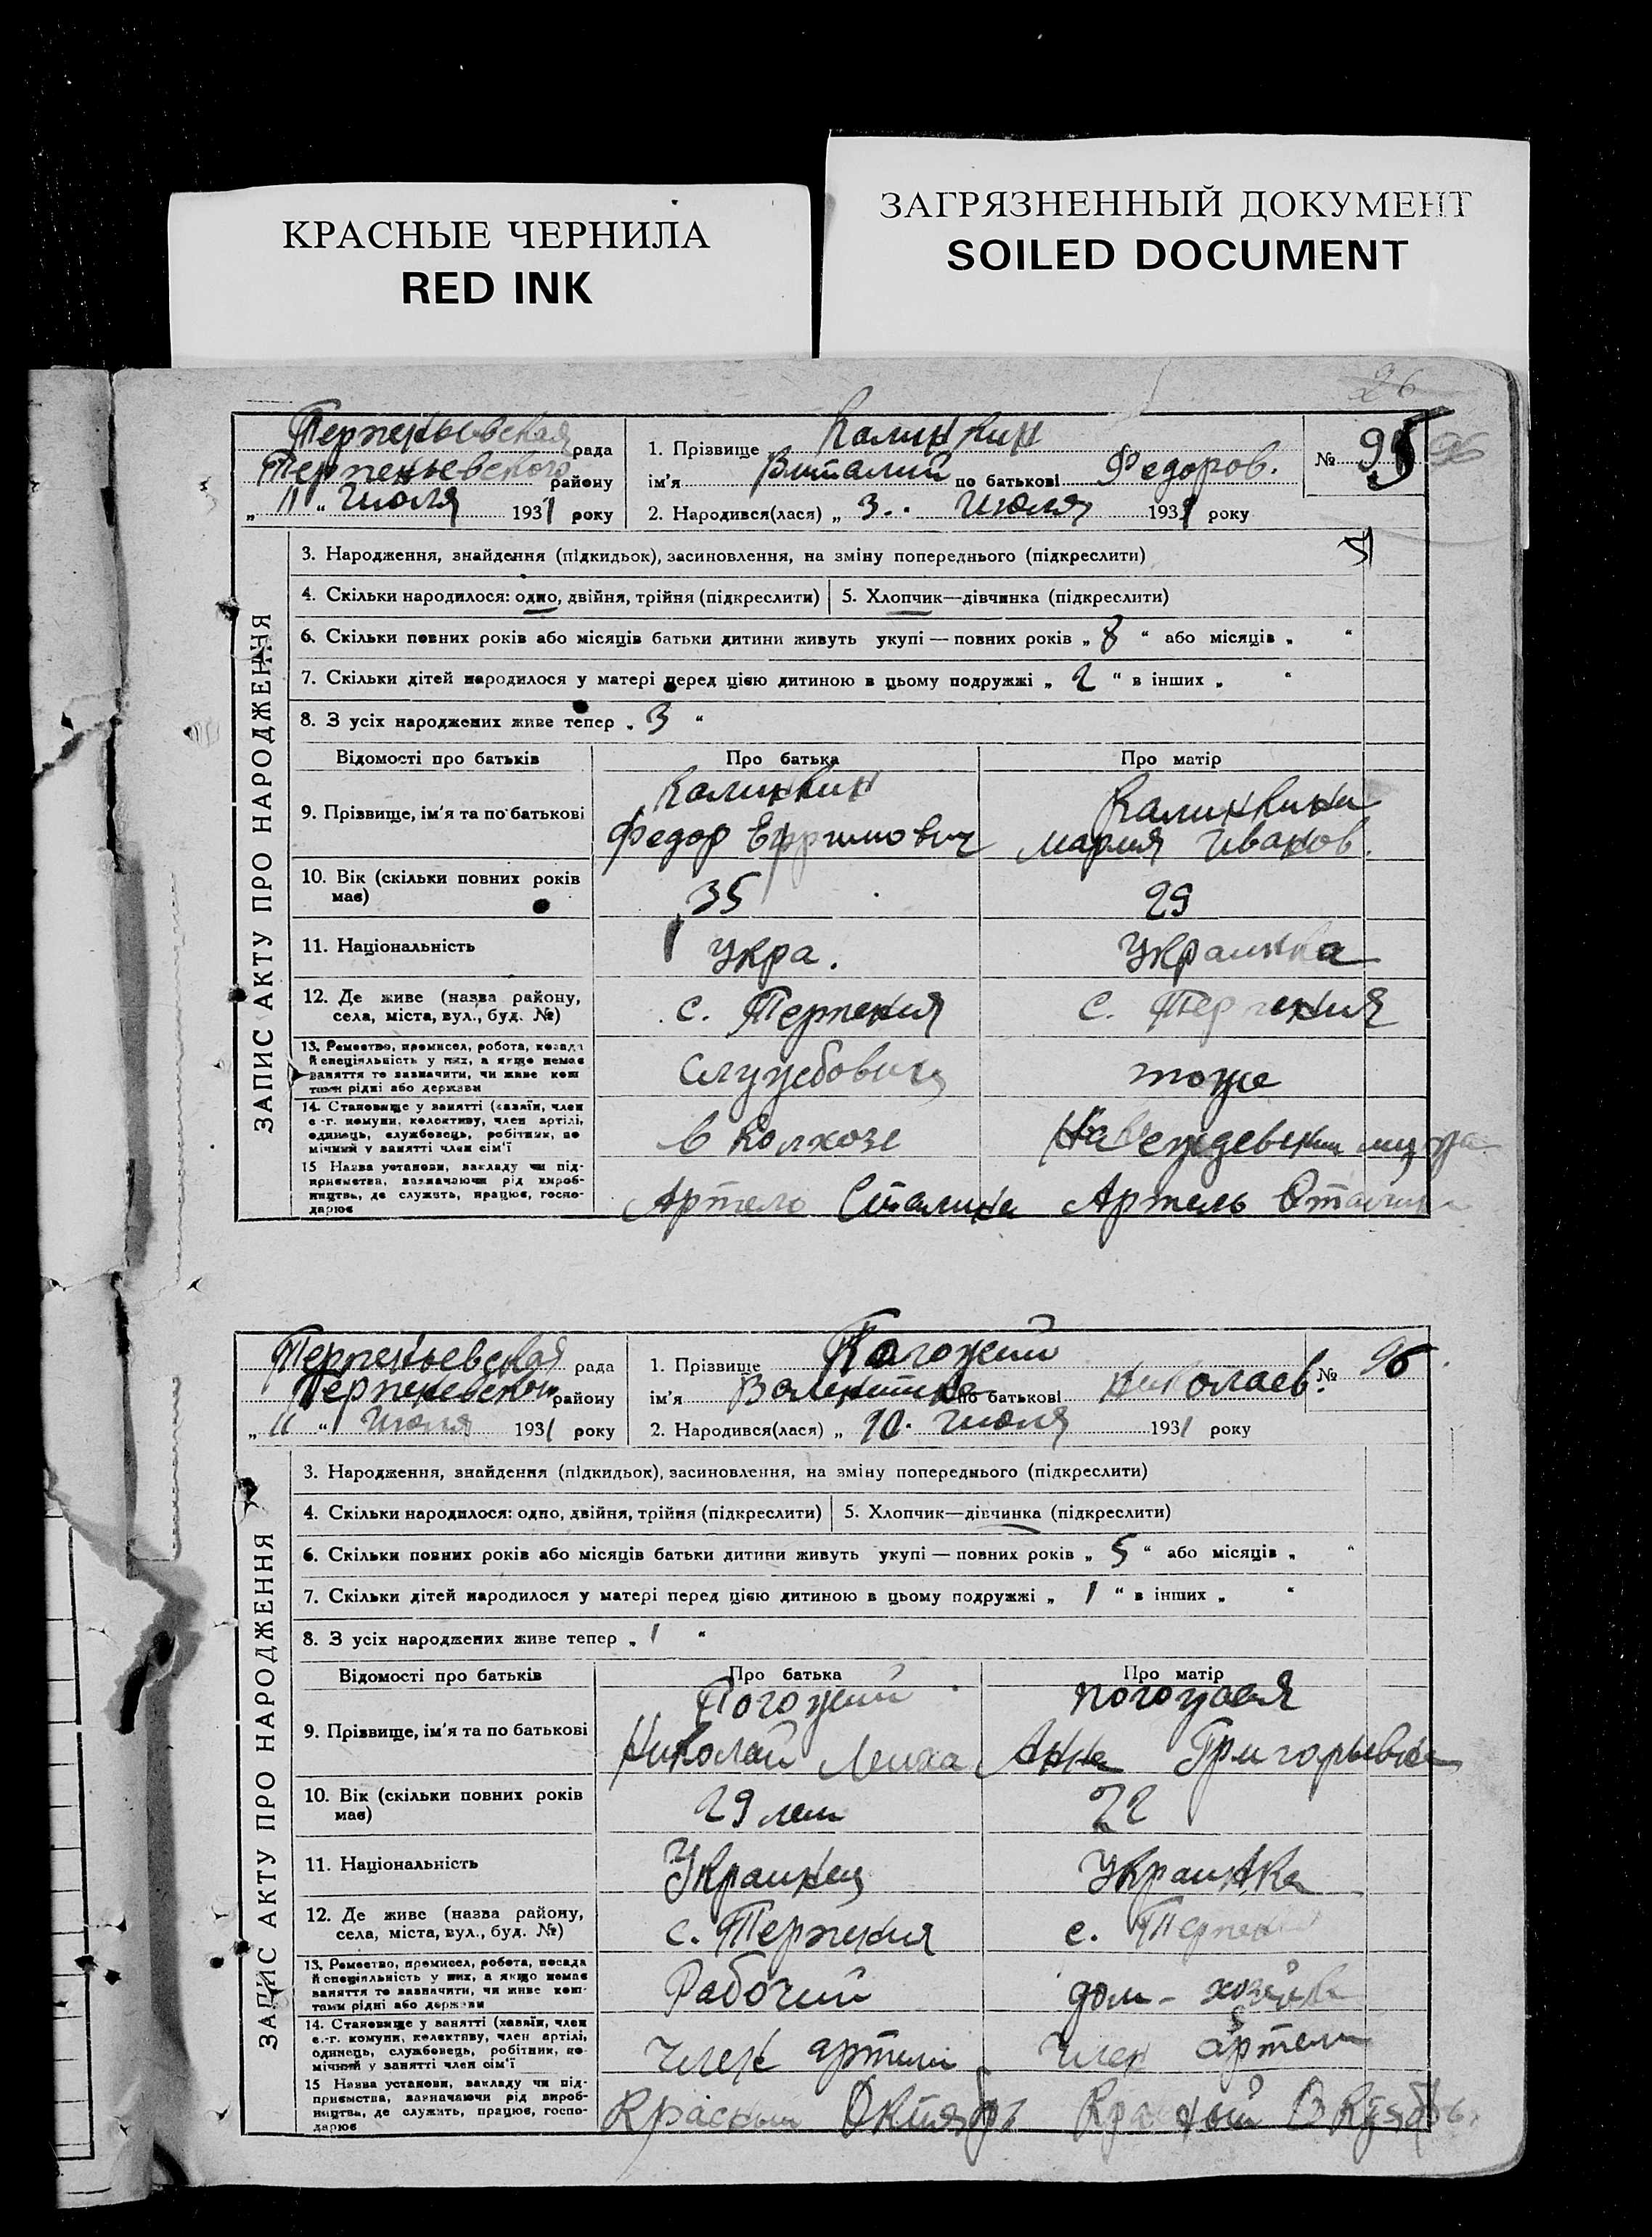 КРАСНЫЕ ЧЕРНИЛА
RED INK
ЗАГРЯЗНЕННЫЙ ДОКУМЕНТ
SOILED DOCUMENT
26
Терпеньевская рада
Терпеньевского району
„ 11 “ Июля 1931 року
1. Прізвище Калинкин
ім'я Виталий по батькові Федоров.
2. Народився(лася) „ 3. Июля 1931 року
№ 95
96
ЗАПИС АКТУ ПРО НАРОДЖЕННЯ
3. Народження, знайдення (підкидьок), засиновлення, на зміну попереднього (підкреслити)
4. Скільки народилося: одно, двійня, трійня (підкреслити)
5. Хлопчик—дівчинка (підкреслити)
6. Скільки повних років або місяців батьки дитини живуть укупі — повних років „ 8 “ або місяців „ “
7. Скільки дітей народилося у матері перед цією дитиною в цьому подружжі „ 2 “ в інших „ “
8. З усіх народжених живе тепер „ 3 “
Відомості про батьків Про батька Про матір
9. Прізвище, ім'я та по батькові
Калинкин
Федор Ефримович
Калинкина
Мария Иванов.
10. Вік (скільки повних років має)
35
29
11. Національність
Укра.
Украинка
12. Де живе (назва району,
села, міста, вул., буд. №)
с. Терпения
с. Терпения
13. Ремество, промисел, робота, посада
й спеціяльність у них, а якщо немає
заняття то зазначити, чи живе кош
тами рідні або держави
Службовиц
тоже
14. Становище у занятті (хазяїн, член
с.-г. комуни, колективу, член артілі,
одинець, службовець, робітник, по
мічний у занятті член сім'ї
в колхозе
На иждевении мужа
15 Назва установи, закладу чи під-
приємства, зазначаючи рід вироб-
ництва, де служить, працює, госпо-
дарює
Артель Сталина
Артель Сталина
Терпеньевская рада
Терпеневского району
„ 11 “ Июля 1931 року
1. Прізвище Погожий
ім'я Валентина по батькові Николаев.
2. Народився(лася) „ 10. Июля 1931 року
№ 96
ЗАПИС АКТУ ПРО НАРОДЖЕННЯ
3. Народження, знайдення (підкидьок), засиновлення, на зміну попереднього (підкреслити)
4. Скільки народилося: одно, двійня, трійня (підкреслити)
5. Хлопчик—дівчинка (підкреслити)
6. Скільки повних років або місяців батьки дитини живуть укупі — повних років „ 5 “ або місяців „ “
7. Скільки дітей народилося у матері перед цією дитиною в цьому подружжі „ 1 “ в інших „ “
8. З усіх народжених живе тепер „ 1 “
Відомості про батьків Про батька Про матір
9. Прізвище, ім'я та по батькові
Погожий
Николай Миха
Погожая
Анна Григорьевна
10. Вік (скільки повних років має)
29 лет
22
11. Національність
Украинец
Украинка
12. Де живе (назва району,
села, міста, вул., буд. №)
с. Терпения
с. Терпени
13. Ремество, промисел, робота, посада
й спеціяльність у них, а якщо немає
заняття то зазначити, чи живе кош-
тами рідні або держави
Рабочий
дом-хозяйка
14. Становище у занятті (хазяїн, член
с.-г. комуни, колективу, член артілі,
одинець, службовець, робітник, по-
мічний у занятті член сім'ї
Член артели
Член артели
15 Назва установи, закладу чи під-
приємства, зазначаючи рід вироб-
ництва, де служить, працює, госпо-
дарює
Красный Октябрь
Красный Октябрь.